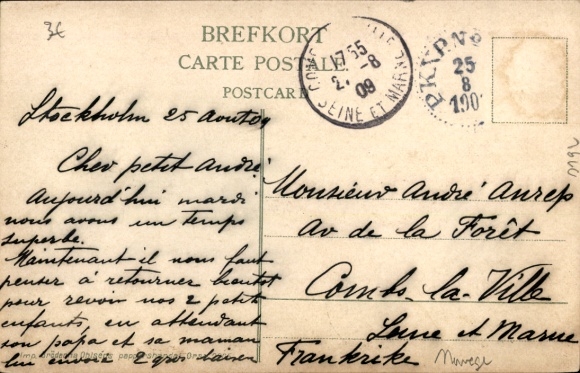 3€
BREFKORT
CARTE POSTALE.
POSTCARD
17 55
2. -8
09
SEINE ET MARNE
PKXP. N
25
8
190
Stockholm 25 Aout 09
Cher petit André
Aujourd'hui mardi
nous avons un temps
superbe.
Maintenant il nous faut
penser à retourner bientot
pour revoir nos 2 petit
enfants, en attendant
son papa et sa maman
lui envoie 2 gros baiser
Monsieur André Anrep
Av de la Forêt
Combs-la-Ville
Seine et Marne
Frankrike